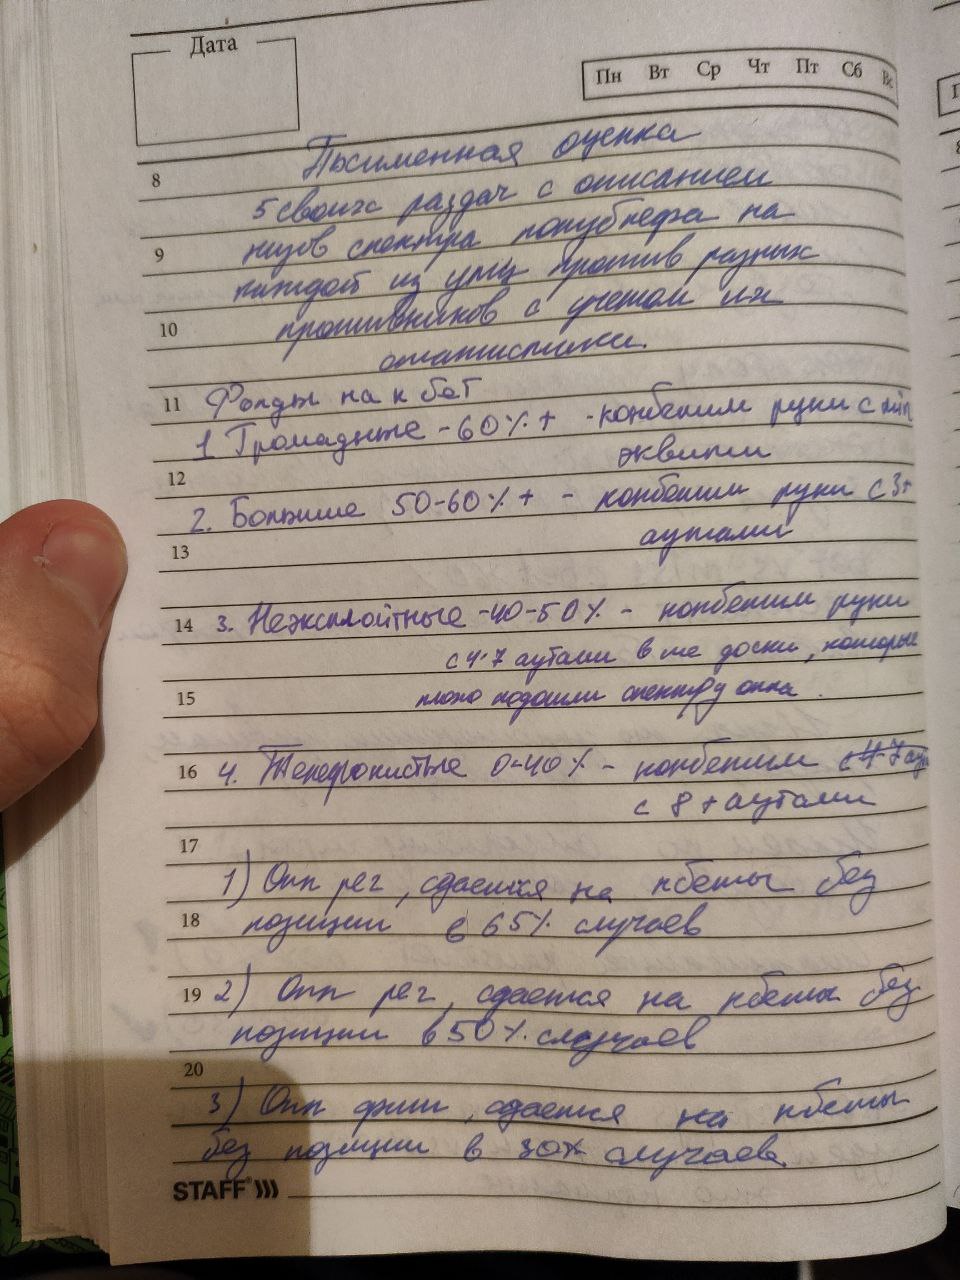 Дата
Пн Вт Ср Чт Пт Сб Вс
8
Письменная оценка
5 своих раздач с описанием
9
низов спектра конбнефа на
каждой из улиц против разных
10
противников с учетом их
статистики.
11
Фолды на к бет
1 Громадные - 60% + - конбетим руки с min
эквити
12
2. Большие 50-60% + - конбетим руки с 3+
аутами
13
14
3. Неэксплойтные - 40-50% - конбетим руки
с 4-7 аутами в те доски, которые
15
плохо подошли спектру оппа.
16
4. Телефонистые 0-40% - конбетим
с 8 + аутами
17
1) Опп рег, сдается на кбеты без
18
позиции в 65% случаев
19
2) Опп рег, сдается на кбеты без
позиции в 50% случаев
20
3) Опп фиш, сдается на кбеты
без позиции в 30% случаев.
STAFF